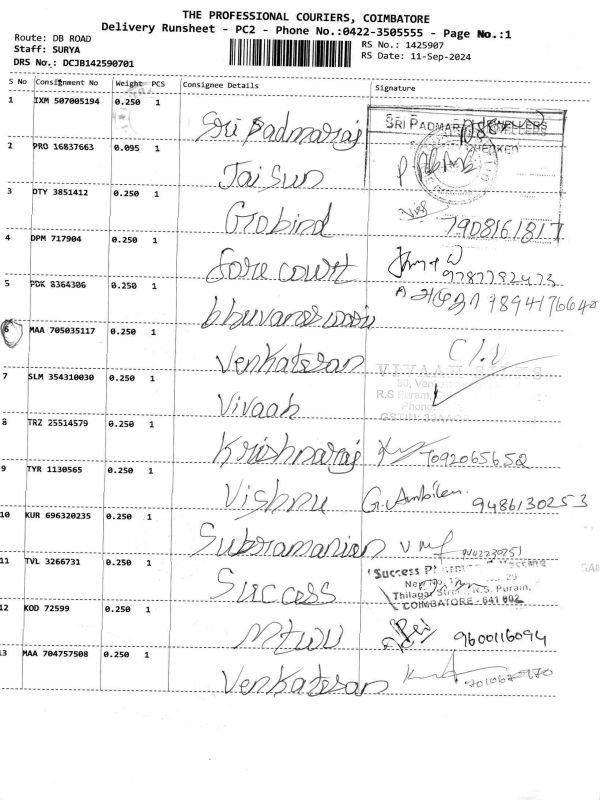 THE PROFESSIONAL COURIERS, COIMBATORE
Delivery Runsheet - PC2 - Phone No.:0422-3505555 - Page No.:1
Route: DB ROAD
Staff: SURYA
RS No.: 1425907
DRS No.: DCJB142590701
RS Date: 11-Sep-2024
S No Consignment No Weight PCS Consignee Details Signature
1 IXM 507005194 0.250 1 Sri Padmaraj SRI PADMARAJ JEWELLERS
CHECKED
2 PRO 16837663 0.095 1 Jai Sun
3 OTY 3851412 0.250 1 Gobind 7908161817
4 DPM 717904 0.250 1 fore court 9787782473
5 PDK 8364306 0.250 1 bhuvaneswari 9894176640
6 MAA 705035117 0.250 1 Venkatesan
7 SLM 354310030 0.250 1 Vivaah
R.S Puram,
8 TRZ 25514579 0.250 1 Krishnaraj 7092065652
9 TYR 1130565 0.250 1 Vishnu G. Ambika 9486130253
10 KUR 696320235 0.250 1 Subramanian
11 TVL 3266731 0.250 1 Success Success
R.S. Puram,
COIMBATORE - 641 002
12 KOD 72599 0.250 1 9600116094
13 MAA 704757508 0.250 1 Venkatesan